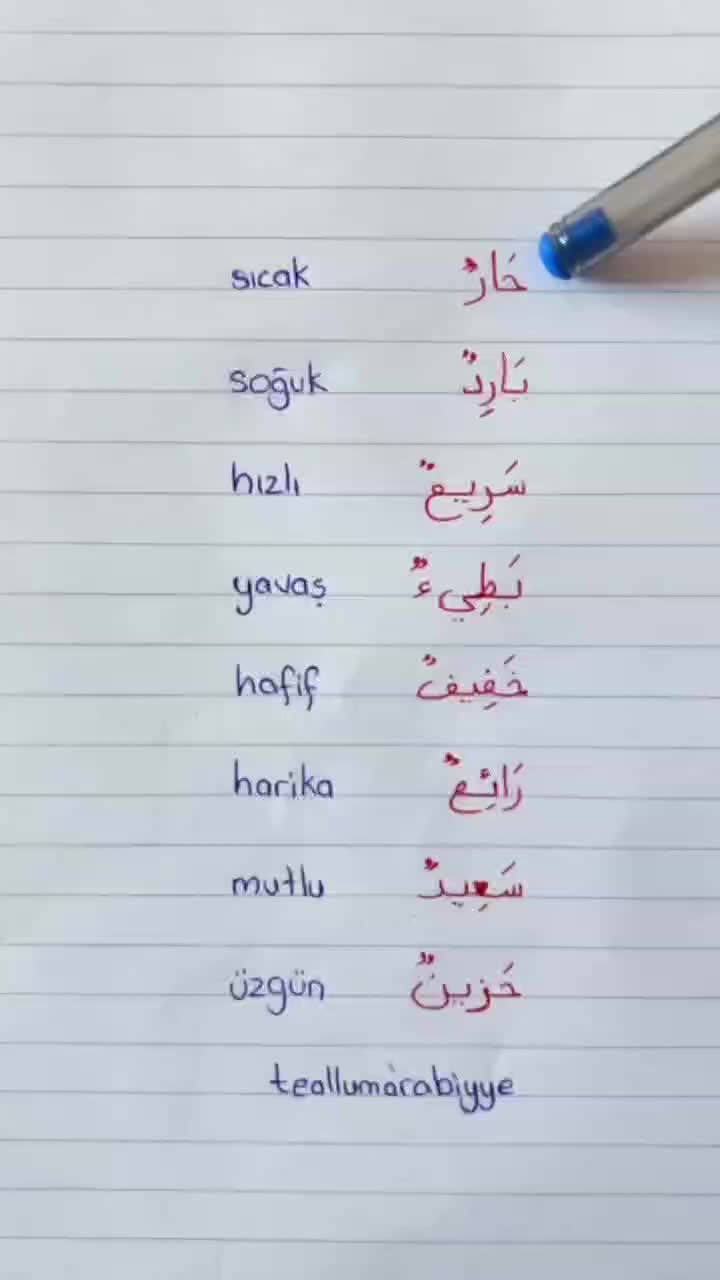 sıcak حَارٌ
soğuk بَارِدٌ
hızlı سَرِيعٌ
yavaş بَطِيءٌ
hafif خَفِيفٌ
harika رَائِعٌ
mutlu سَعِيدٌ
üzgün حَزِينٌ
teallumarabiyye